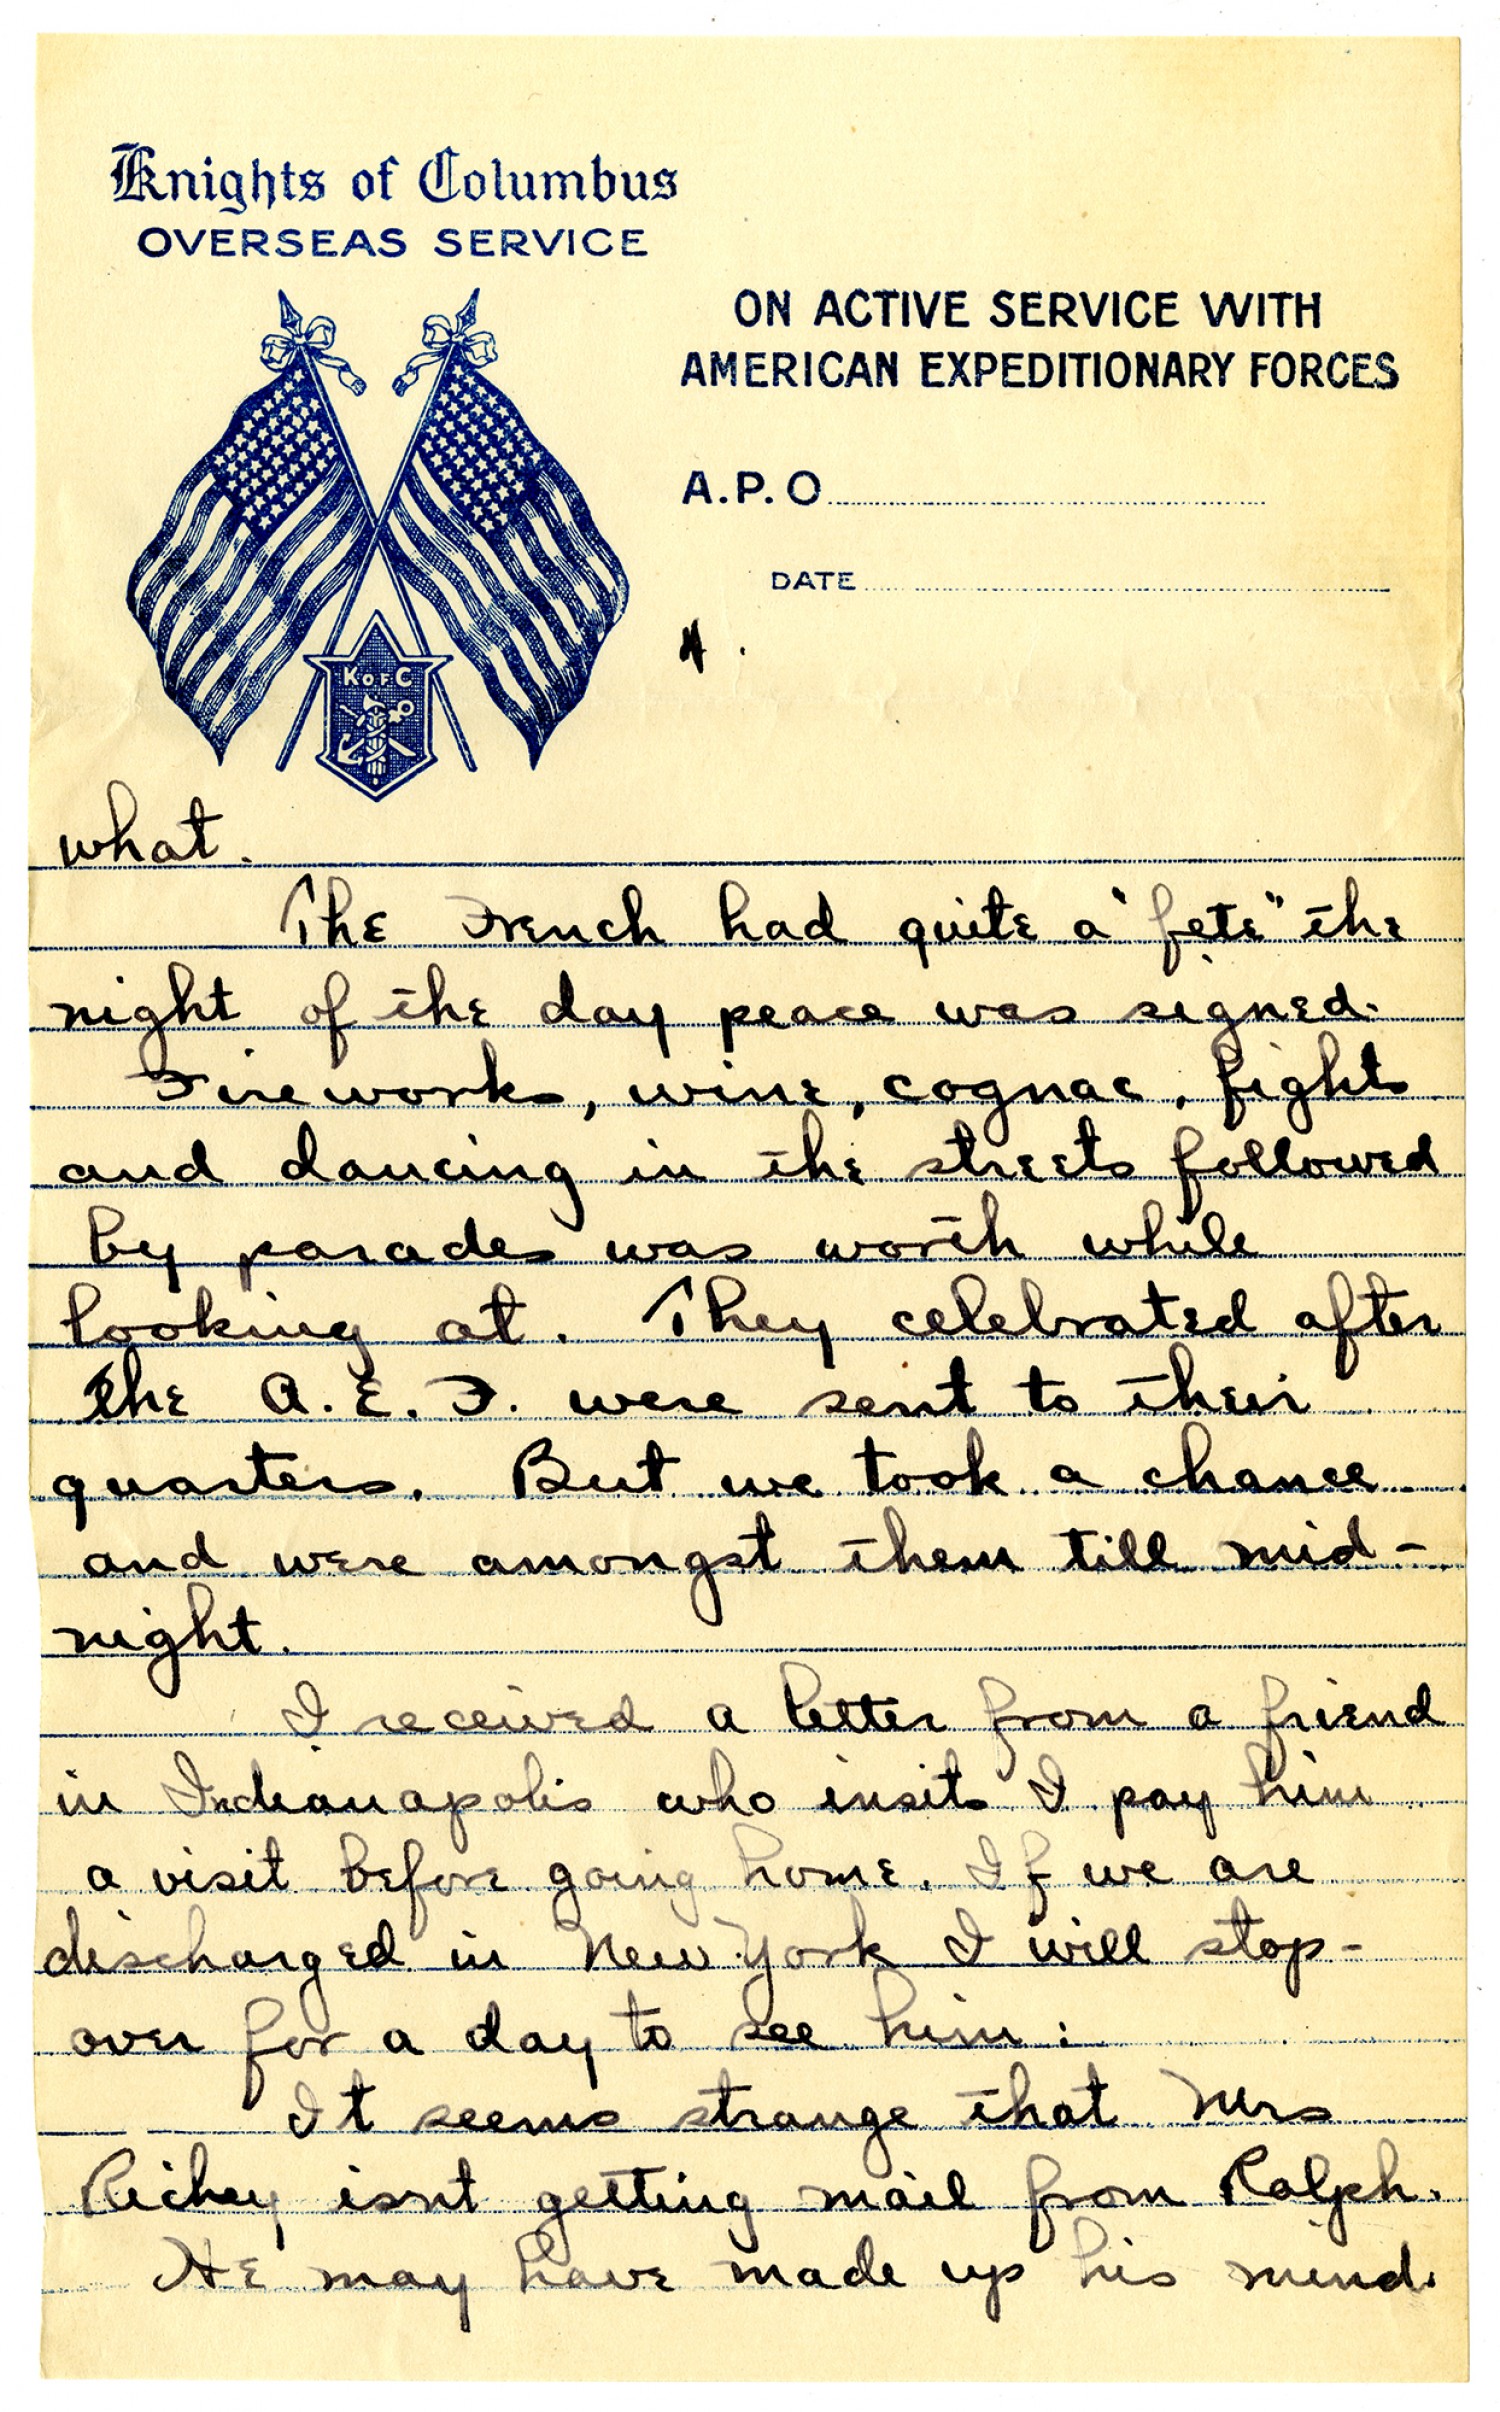 Knights of Columbus
OVERSEAS SERVICE
ON ACTIVE SERVICE WITH
AMERICAN EXPEDITIONARY FORCES
A.P.O
DATE
K OF C
what.
The French had quite a "fete" the
night of the day peace was signed.
Fireworks, wine, cognac, fights
and dancing in the streets followed
by parades was worth while
looking at. They celebrated after
the A.E.F. were sent to their
quarters. But we took a chance
and were amongst them till mid-
night.
I received a letter from a friend
in Indianapolis who insits I pay him
a visit before going home. If we are
discharged in New York I will stop-
over for a day to see him.
It seems strange that Mrs
Richey isnt getting mail from Ralph.
He may have made up his mind.